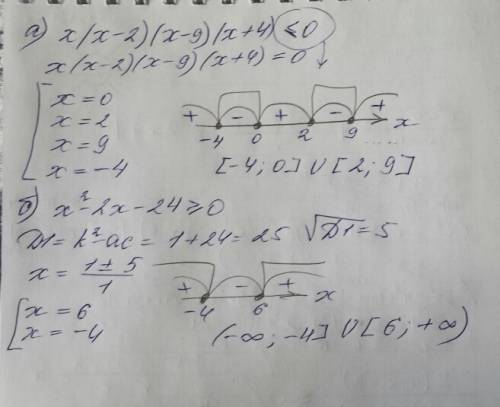 а) x(x-2)(x-9)(x+4) ≤0
x(x-2)(x-9)(x+4)=0
x=0
x=2
x=9
x=-4
+ - + - +
-4 0 2 9 x
[-4;0]∪[2;9]
б) x²-2x-24≥0
D1=k²-ac= 1+24=25 √D1=5
x= (1±5)/1
+ - +
-4 6 x
x=6
x=-4
(-∞;-4]∪[6;+∞)